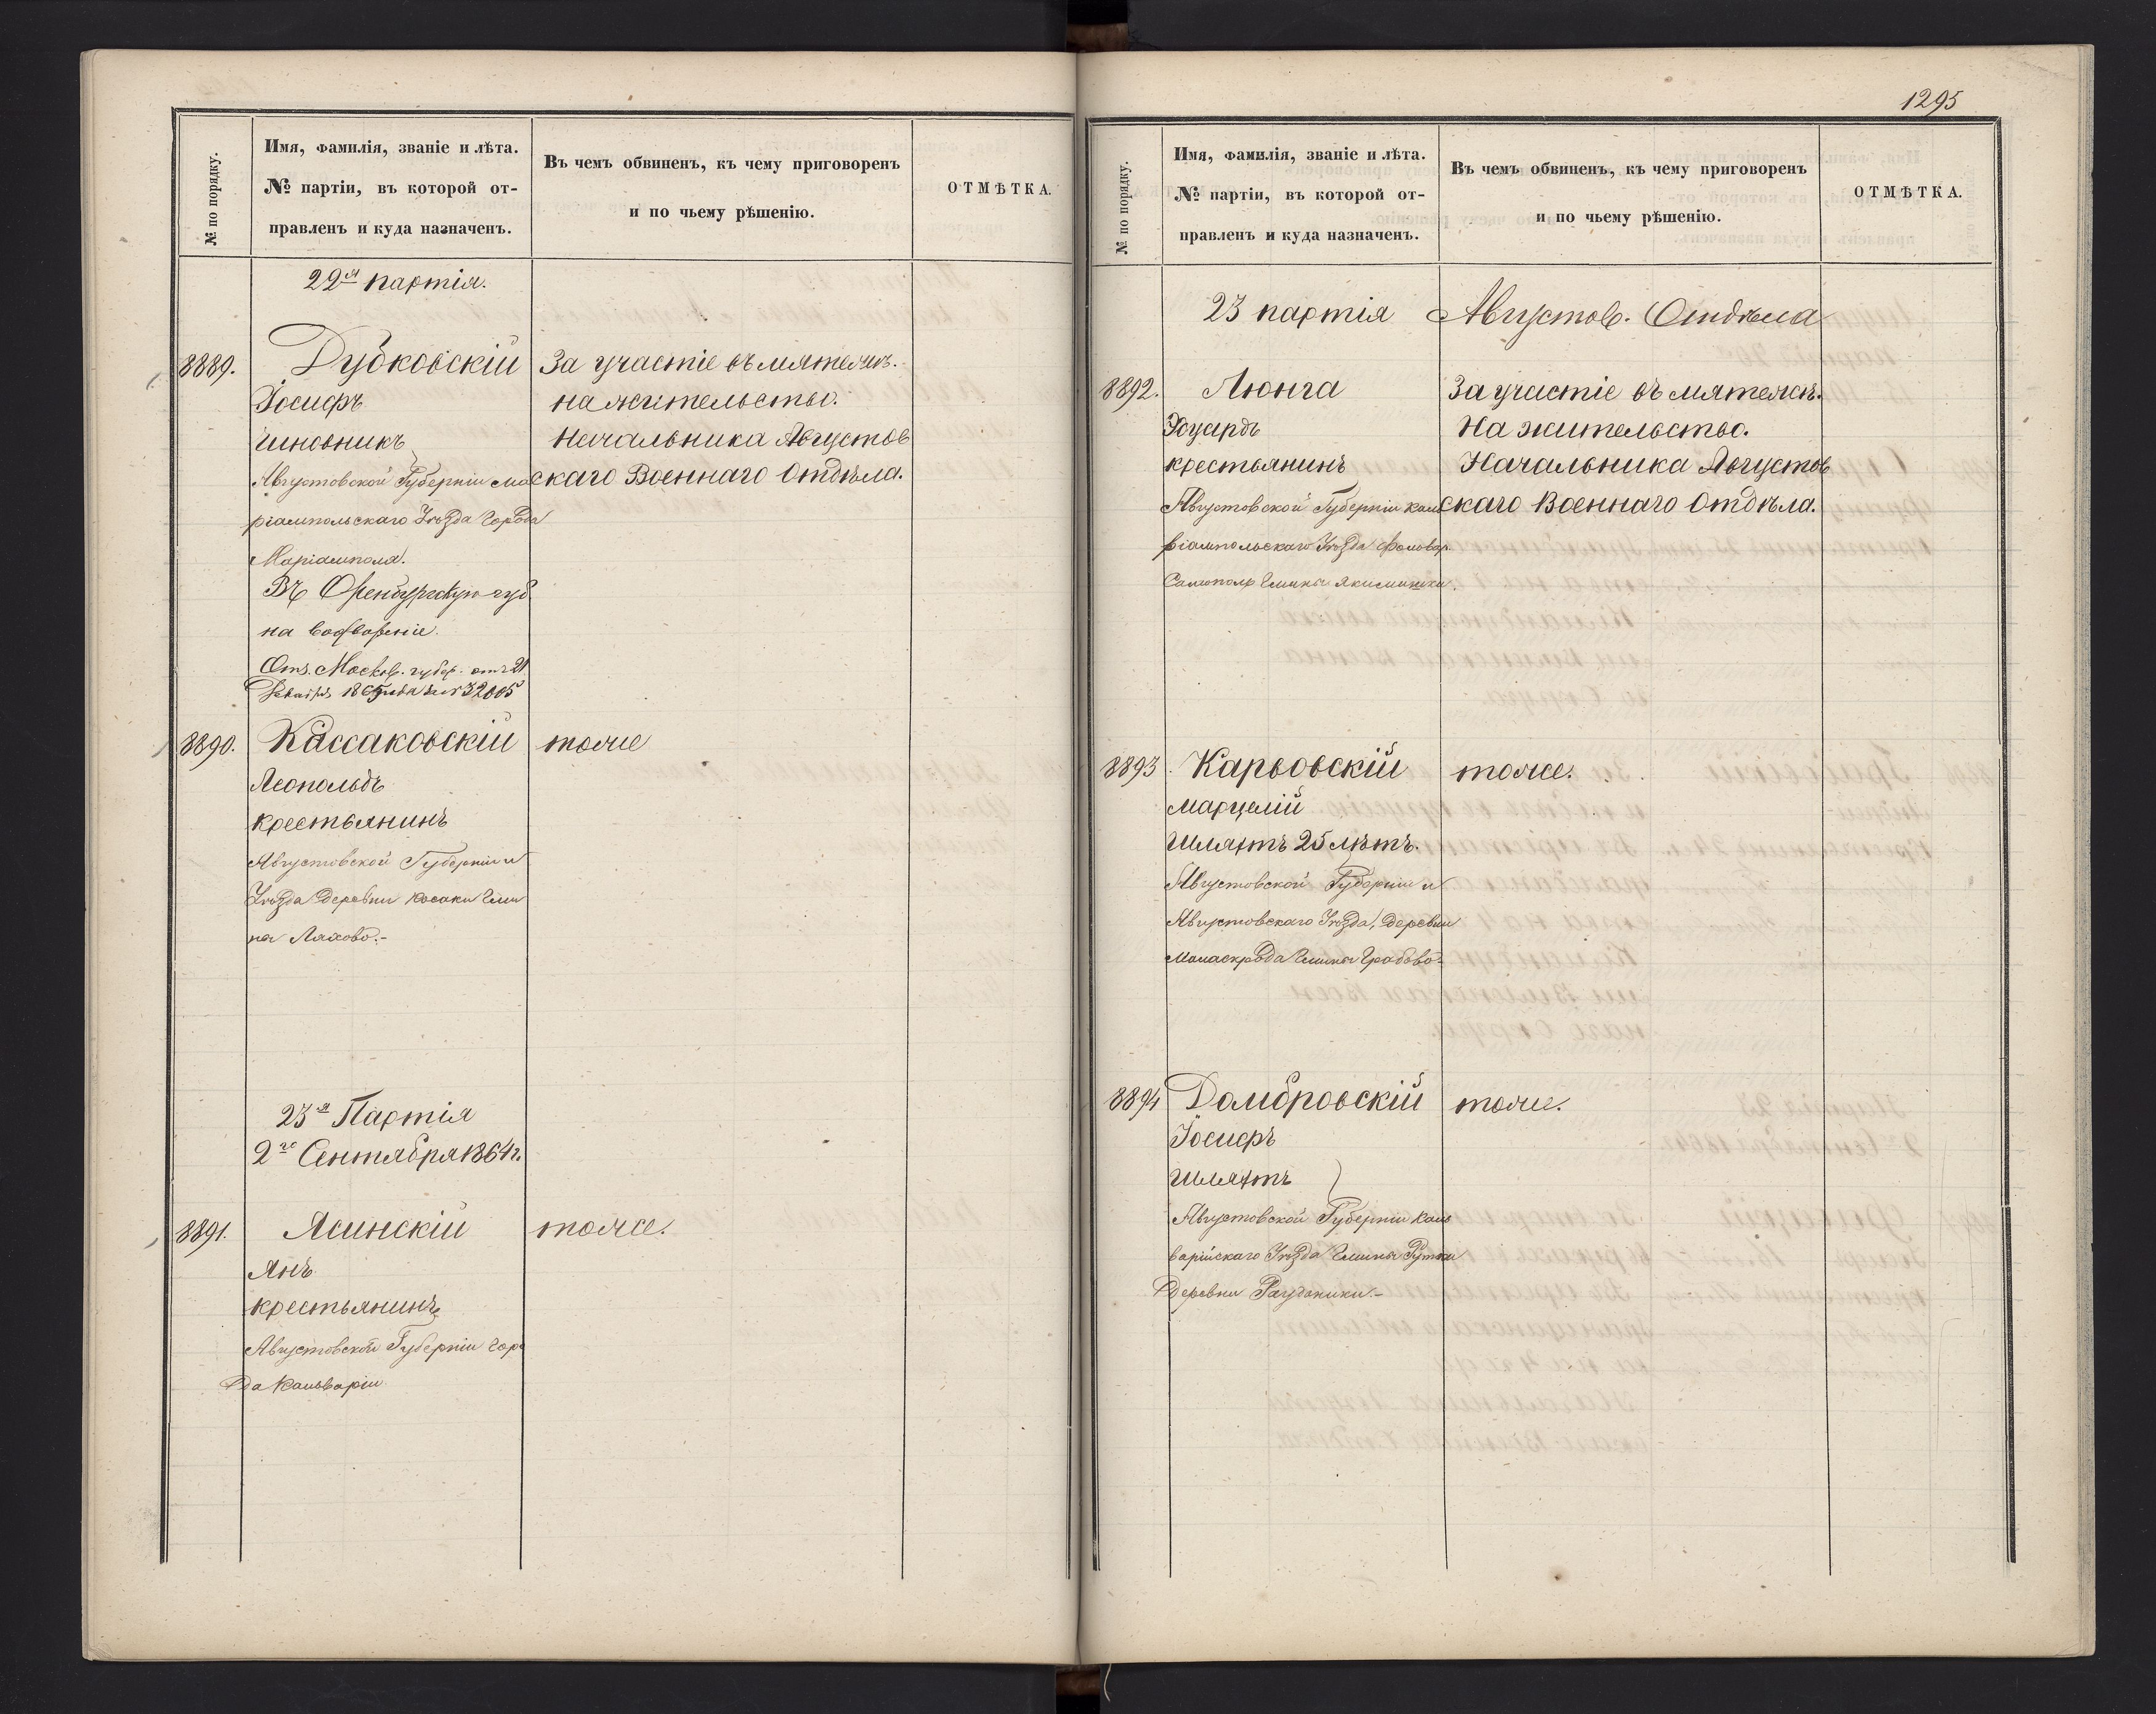 № по порядку.
Имя, фамилія, званіе и лѣта.
№ партіи, въ которой от-
правленъ и куда назначенъ.
Въ чемъ обвиненъ, къ чему приговоренъ
и по чьему рѣшенію.
ОТМѢТКА.
22я партія.
8889.
Дубковскій
За участіе въ мятежѣ.
Іосифъ
на жительство.
чиновникъ
Начальника Августов
Августовской Губерніи Ма
скаго Военнаго Отдѣла.
ріампольскаго Уѣзда города
Маріамполя.
Въ Оренбургскую губ
на водвореніе.
Отз. Москов. губер. отъ 21
Декабря 1865 № 32005
8890.
Кассаковскій
тоже
Леопольдъ
крестьянинъ
Августовской Губерніи и
Уѣзда деревни Косаки Гми
на Ляхово.-
23я Партія
2го Сентября 1864 г.
8891.
Ясинскій
тоже.
Янъ
крестьянинъ
Августовской Губерніи горо
да Кальваріи
1295
№ по порядку.
Имя, фамилія, званіе и лѣта.
№ партіи, въ которой от-
правленъ и куда назначенъ.
Въ чемъ обвиненъ, къ чему приговоренъ
и по чьему рѣшенію.
ОТМѢТКА.
23 партія Августов. Отдѣла
8892.
Люнга
За участіе въ мятежѣ.
Эдуардъ
На жительство.
крестьянинъ
Начальника Августов
Августовской Губерніи
скаго Военнаго Отдѣла.
ріампольскаго Уѣзда фольвар.
Гмины Якимишки.
8893.
Карвовскій
тоже.
Марцелій
Шляхтъ 25 лѣтъ.
Августовской Губерніи и
Августовскаго Уѣзда, деревни
Гмины Грабово.-
8894
Домбровскій
тоже.
Іосифъ
Шляхтъ
Августовской Губерніи Каль
варійскаго Уѣзда Гмины Рутки
деревни